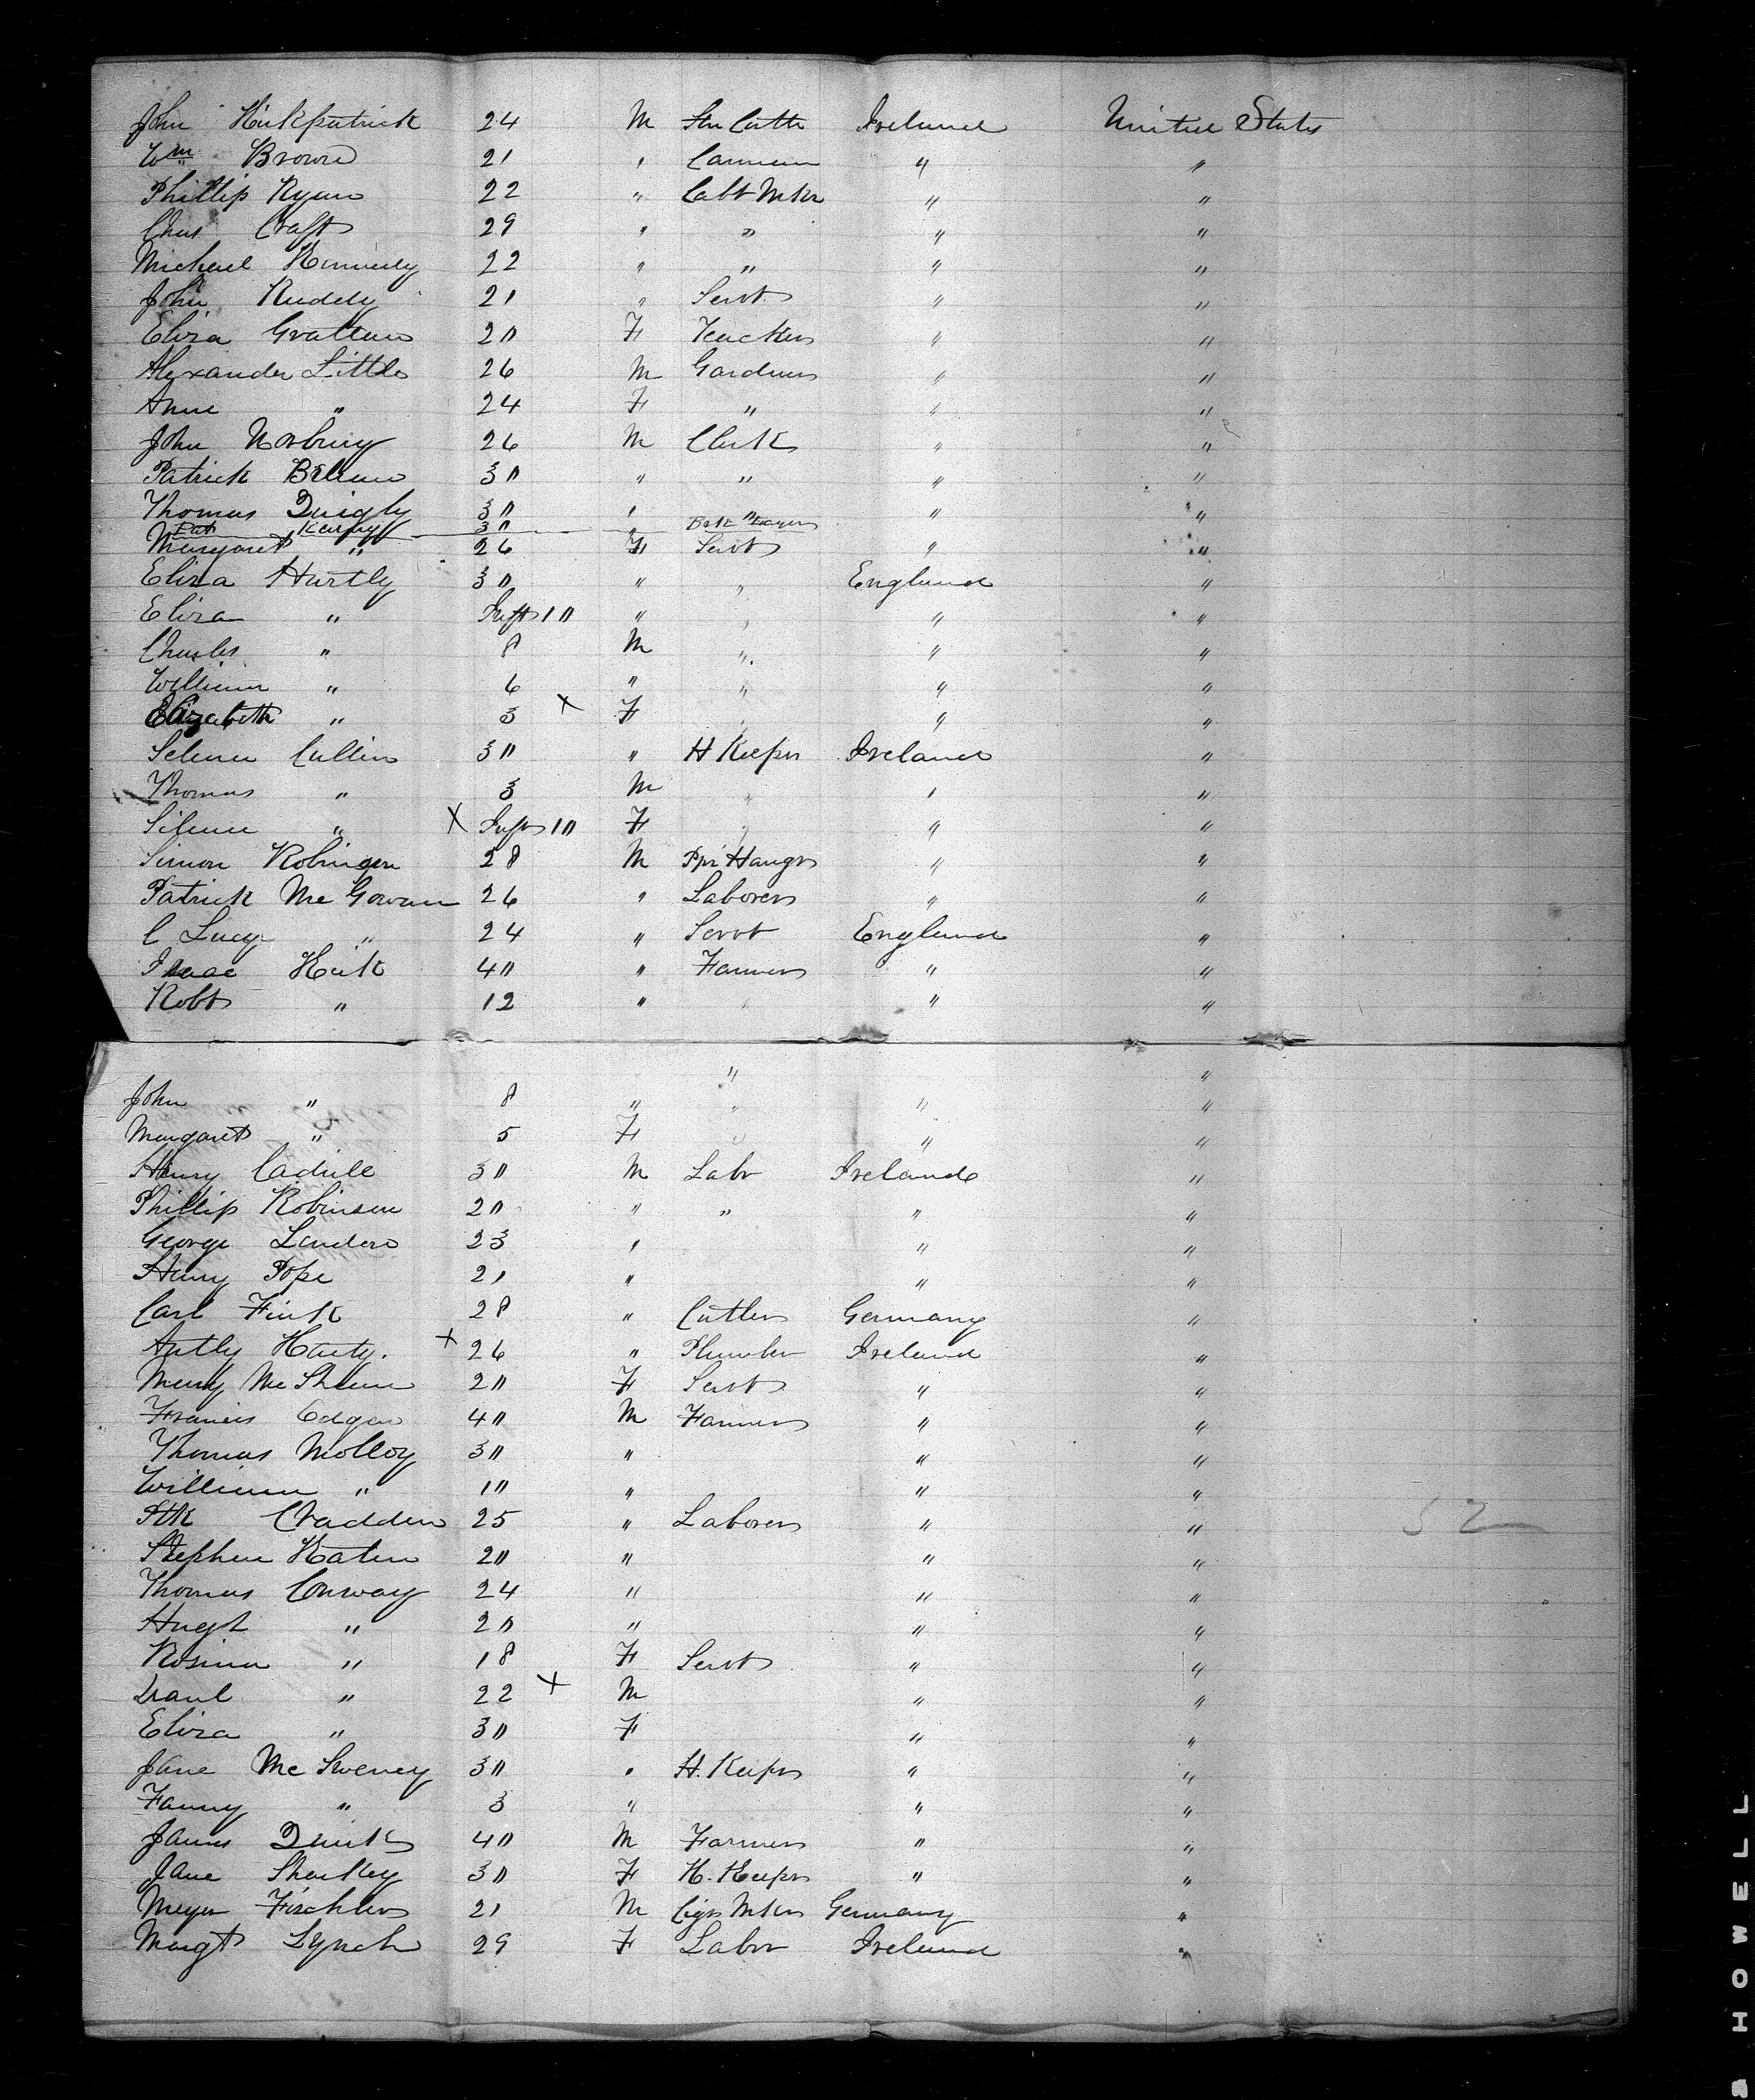 John Kirkpatrick 24 M Stn Cutte Ireland United States
Wm Brown 21 " Carman " "
Phillip Ryan 22 " Cabt Mkr " "
Chas Craft 29 " " " "
Michael Kennedy 22 " " " "
John Ruddy 21 " Servt " "
Eliza Grattan 20 F Teacher " "
Alexander Little 26 M Gardner " "
Anne " 24 F " " "
John Norbury 26 M Clerk " "
Patrick 30 " " " "
Thomas Quigly 30 " " " "
Pat Kearny 30 " Bk
Margaret " 26 F Servt " "
Eliza Hartly 30 " " England "
Eliza " Inft 10 " " " "
Charles " 8 M " " "
William " 6 " " " "
Elizabeth " 3 x F " " "
Selena Cullin 30 " H Keeper Ireland "
Thomas " 3 M " " "
Silence " X Inft 10 F " " "
Simon Robinson 28 M Ppr Hangr " "
Patrick McGowan 26 " Laborer " "
C Lucy " 24 " Servt England "
Isaac 40 " Farmer " "
Robt " 12 " " " "
" "
John " 8 " " " "
Margaret " 5 F " " "
Henry 30 M Labr Ireland "
Phillip Robinson 20 " " " "
George Landers 23 " " "
Henry Pope 21 " " "
Carl Fink 28 " Cutler Germany "
Antly Harty. x 26 " Plumber Ireland "
Mary McShane 20 F Servt " "
Francis Edgar 40 M Farmer " "
Thomas Molloy 30 " " "
William " 10 " " "
Ptk Cradden 25 " Laborer " " 52
Stephen Katen 20 " " "
Thomas Conway 24 " " "
Hugh " 20 " " "
Rosina " 18 F Servt " "
" 22 x M " "
Eliza " 30 F " "
Jane McSweney 30 " H. Keeper " "
Fanny " 3 " " "
James Quirk 40 M Farmer " "
Jane Sharkey 30 F H. Keeper " "
Meyer Fischler 21 M Cigr Mkr Germany "
Margt Lynch 29 F Labor Ireland "
HOWELL